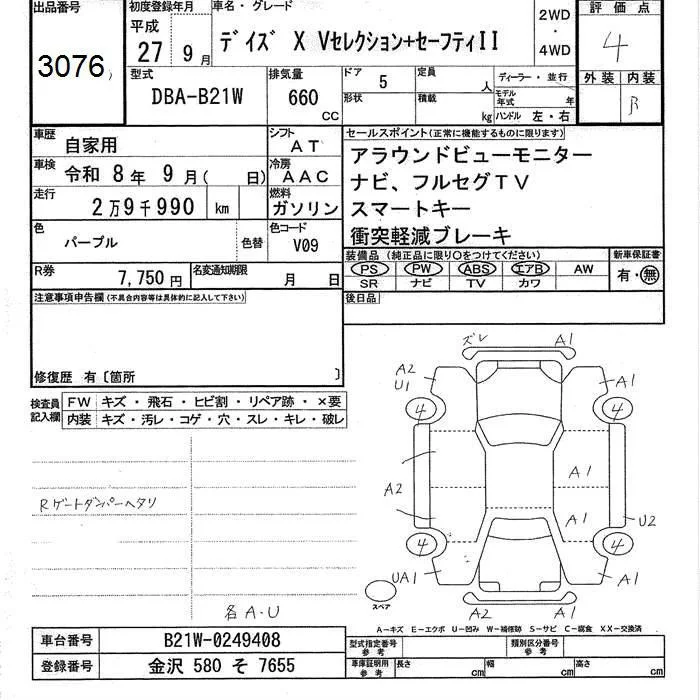 出品番号
3076
初度登録年月
平成
27 9 月
車名・グレード
デイズ X Vセレクション+セーフティII
2WD
・
4WD
評価点
4
型式
DBA-B21W
排気量
660
CC
ドア 5
定員 人
形状
積載 kg
ディーラー・並行
モデル年式 年
ハンドル 左・右
外装 内装
B
車歴 自家用
シフト AT
車検 令和 8 年 9 月( 日)
冷房 AAC
走行 2万9千990 km
燃料 ガソリン
色 パープル
色替
色コード V09
R券 7,750 円
名変通知期限 月 日
セールスポイント(正常に機能するものに限ります)
アラウンドビューモニター
ナビ、フルセグTV
スマートキー
衝突軽減ブレーキ
装備品 (純正品に限り○をつけてください)
PS PW ABS エアB AW
SR ナビ TV カワ
新車保証書
有・無
後日品
注意事項申告欄(不具合内容等は具体的に記入して下さい)
修復歴 有〔箇所 〕
検査員記入欄
FW キズ・飛石・ヒビ割・リペア跡・×要
内装 キズ・汚レ・コゲ・穴・スレ・キレ・破レ
Rゲートダンパーヘタリ
各A・U
ズレ A1
A2
U1
A1
4 4
A1
A2
A1
U2
4 4
UA1
A1
スペア
A2 A1
A-キズ E-エクボ U-凹み W-補修跡 S-サビ C-腐食 XX-交換済
車台番号 B21W-0249408
登録番号 金沢 580 そ 7655
型式指定番号 参考
類別区分番号 参考
車庫証明用 参考
長さ cm
幅 cm
高さ cm